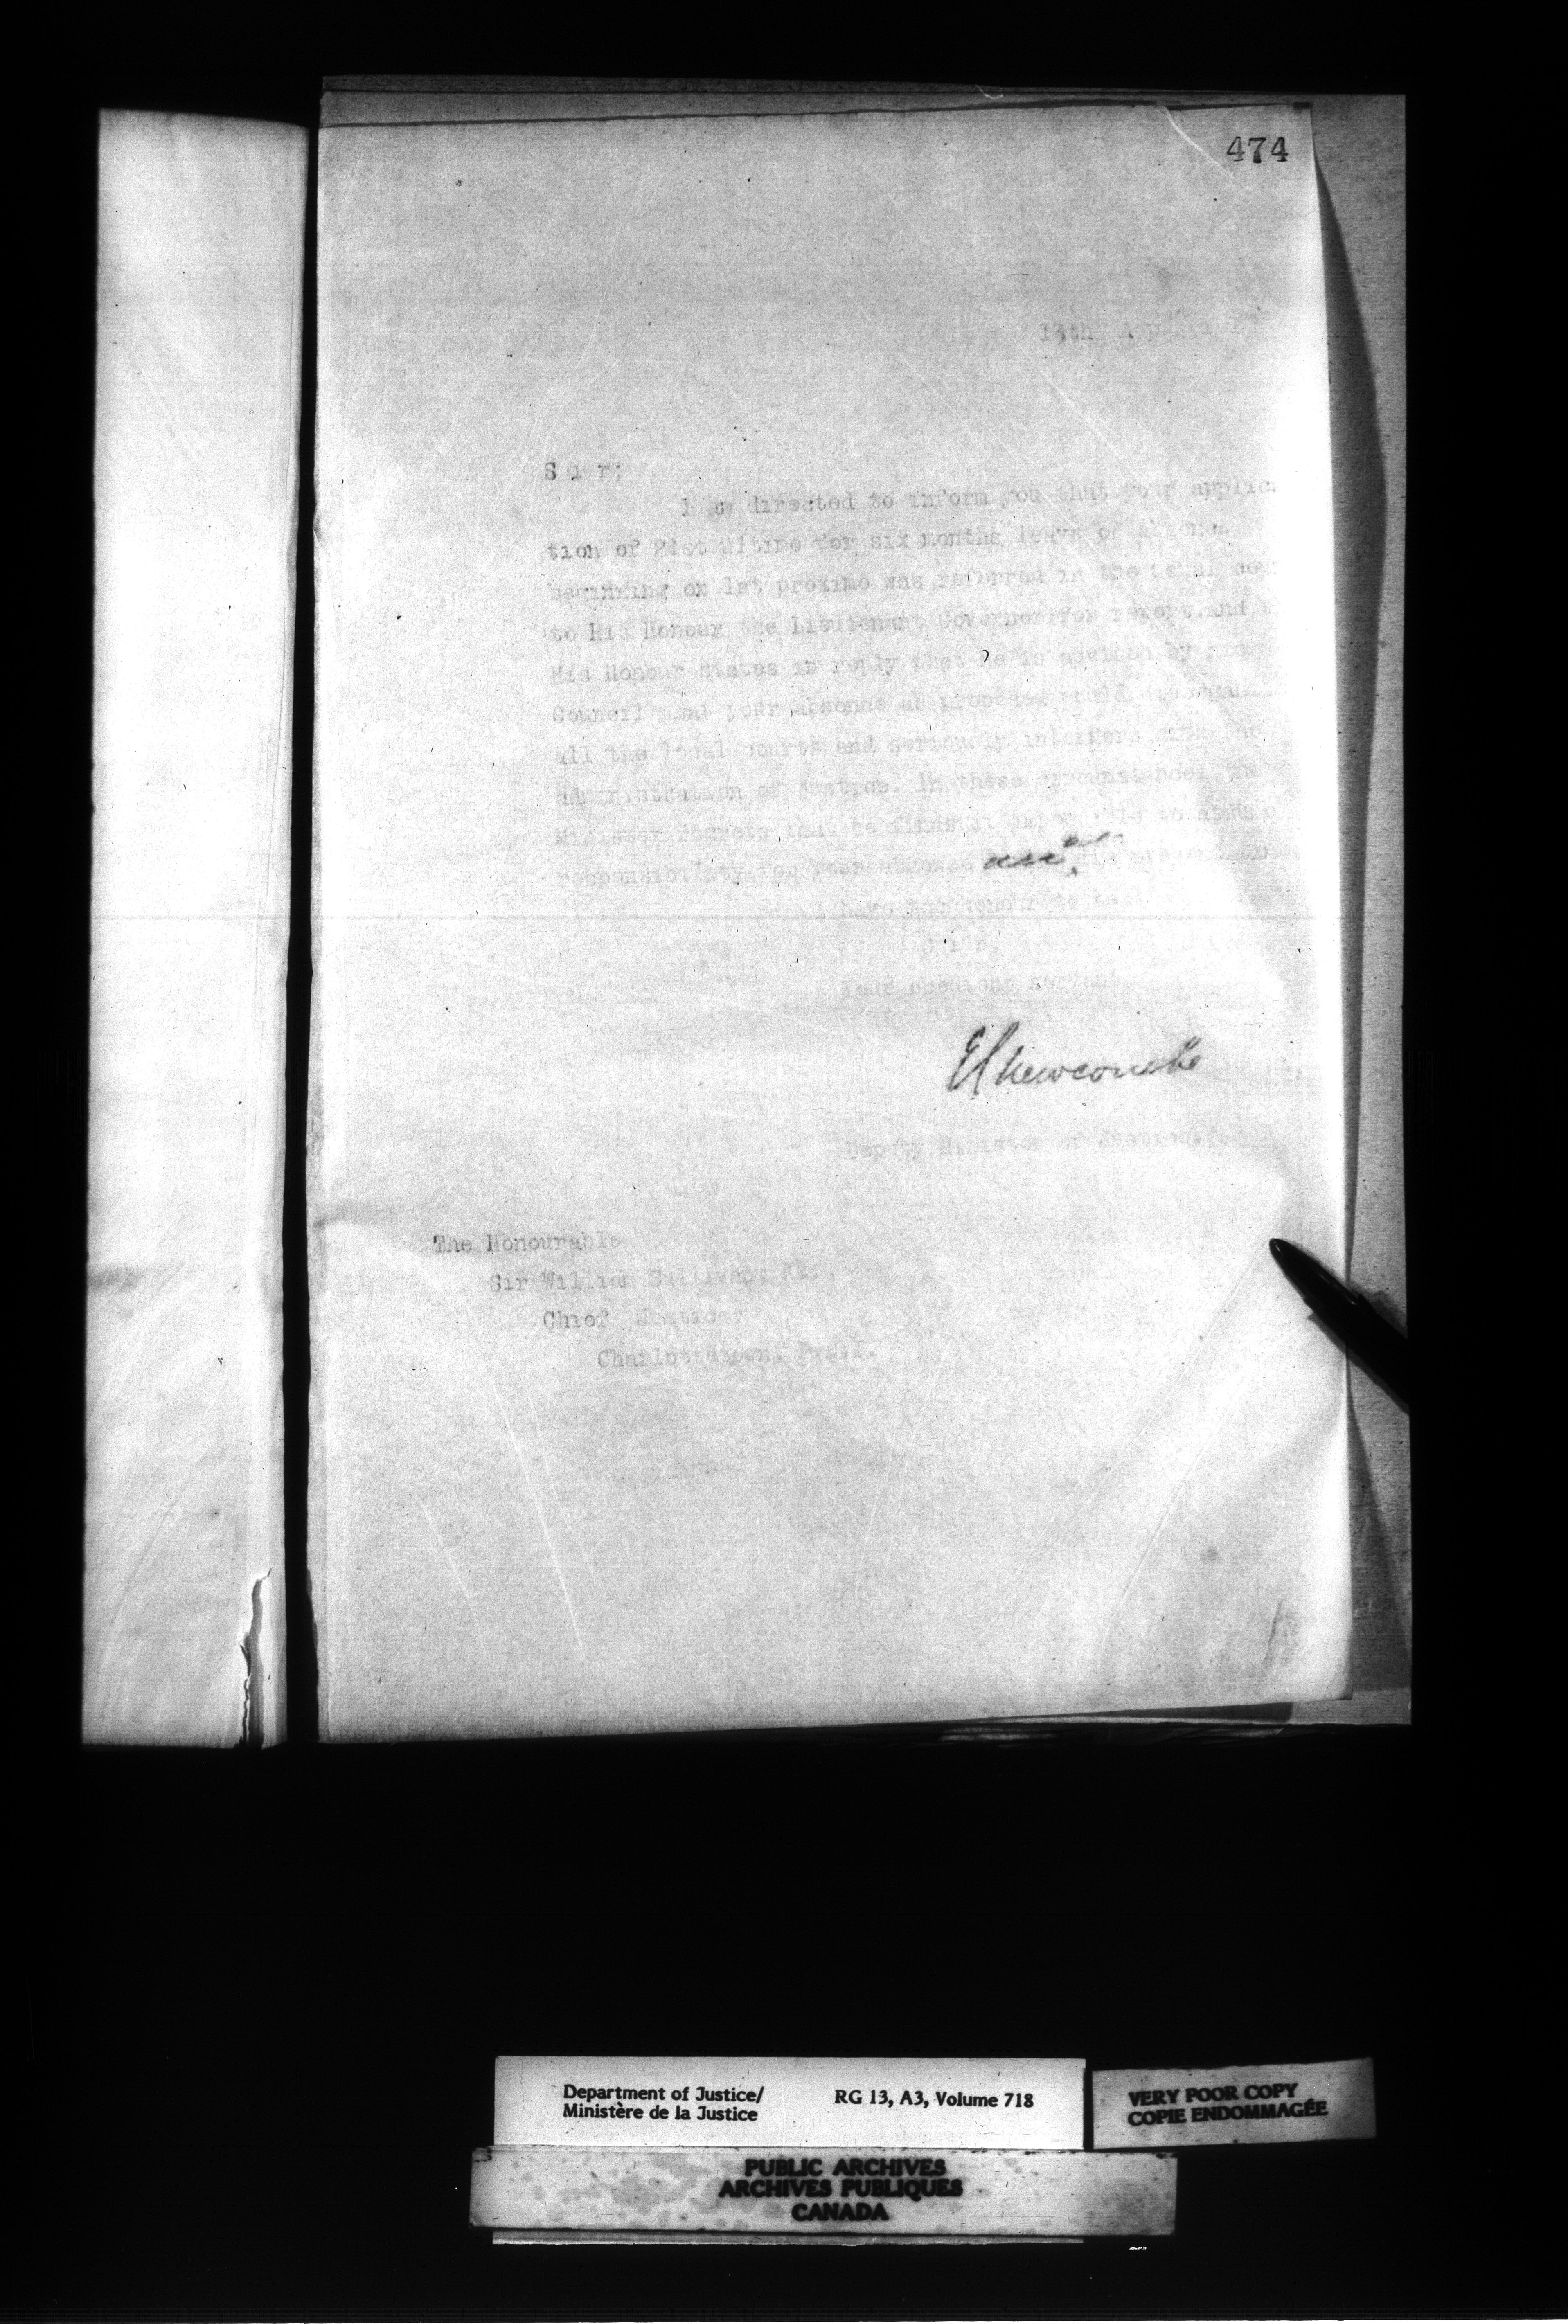 474
13th April
S i r;
I am directed to inform you that your applica
tion of 21st ultimo for six months leave of absence
beginning on 1st proximo was referred in the usual
to His Honour the Lieutenant Governor for report, and
His Honour states in reply that he is advised by his
Council that your absence as proposed would
all the local courts and seriously interfere with the
administration of justice. In these circumstances the
Minister regrets that he finds it impossible to
responsibility for your absence
I have the honour to be,
S i r,
Your obedient servant,
E L Newcombe
Deputy Minister of Justice.
The Honourable
Sir William Sullivan, Kt.,
Chief Justice,
Charlottetown, P.E.I.
Department of Justice/
Ministère de la Justice
RG 13, A3, Volume 718
VERY POOR COPY
COPIE ENDOMMAGÉE
PUBLIC ARCHIVES
ARCHIVES PUBLIQUES
CANADA